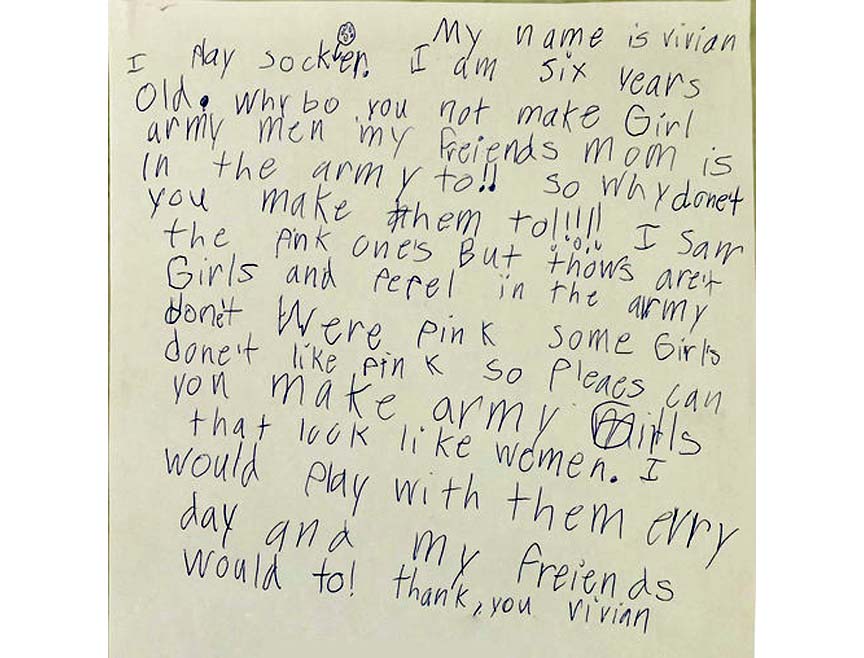 My name is vivian
I play socker. I am six years
Old. Why bo you not make Girl
army men my freiends mom is
in the army to!! so why done't
you make them to!!!! I saw
the pink one's But thows are't
Girls and pepel in the army
done't Were pink some Girls
done't like pink so pleaes can
you make army Girls
that look like women. I
would play with them evry
day and my freiends
would to! thank, you vivian